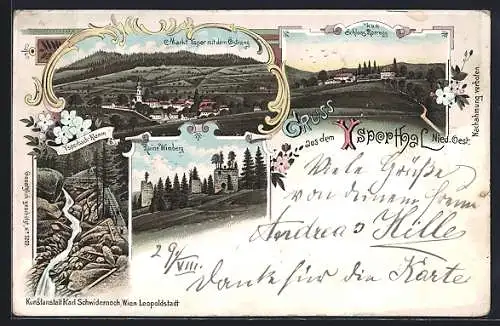 Markt Ysper mit dem Ostrong
Schloss Rorregg
Gruss
aus dem
Ysperthal
Nied. Oest.
Nachahmung verboten
Ysperbach-Klamm
Ruine Wimberg
Gesetzlich geschützt
Viele Grüße
von deinem Freund
Andreas Hille
29/VIII.
Dank für die Karte
Kunstanstalt Karl Schwidernoch, Wien Leopoldstadt